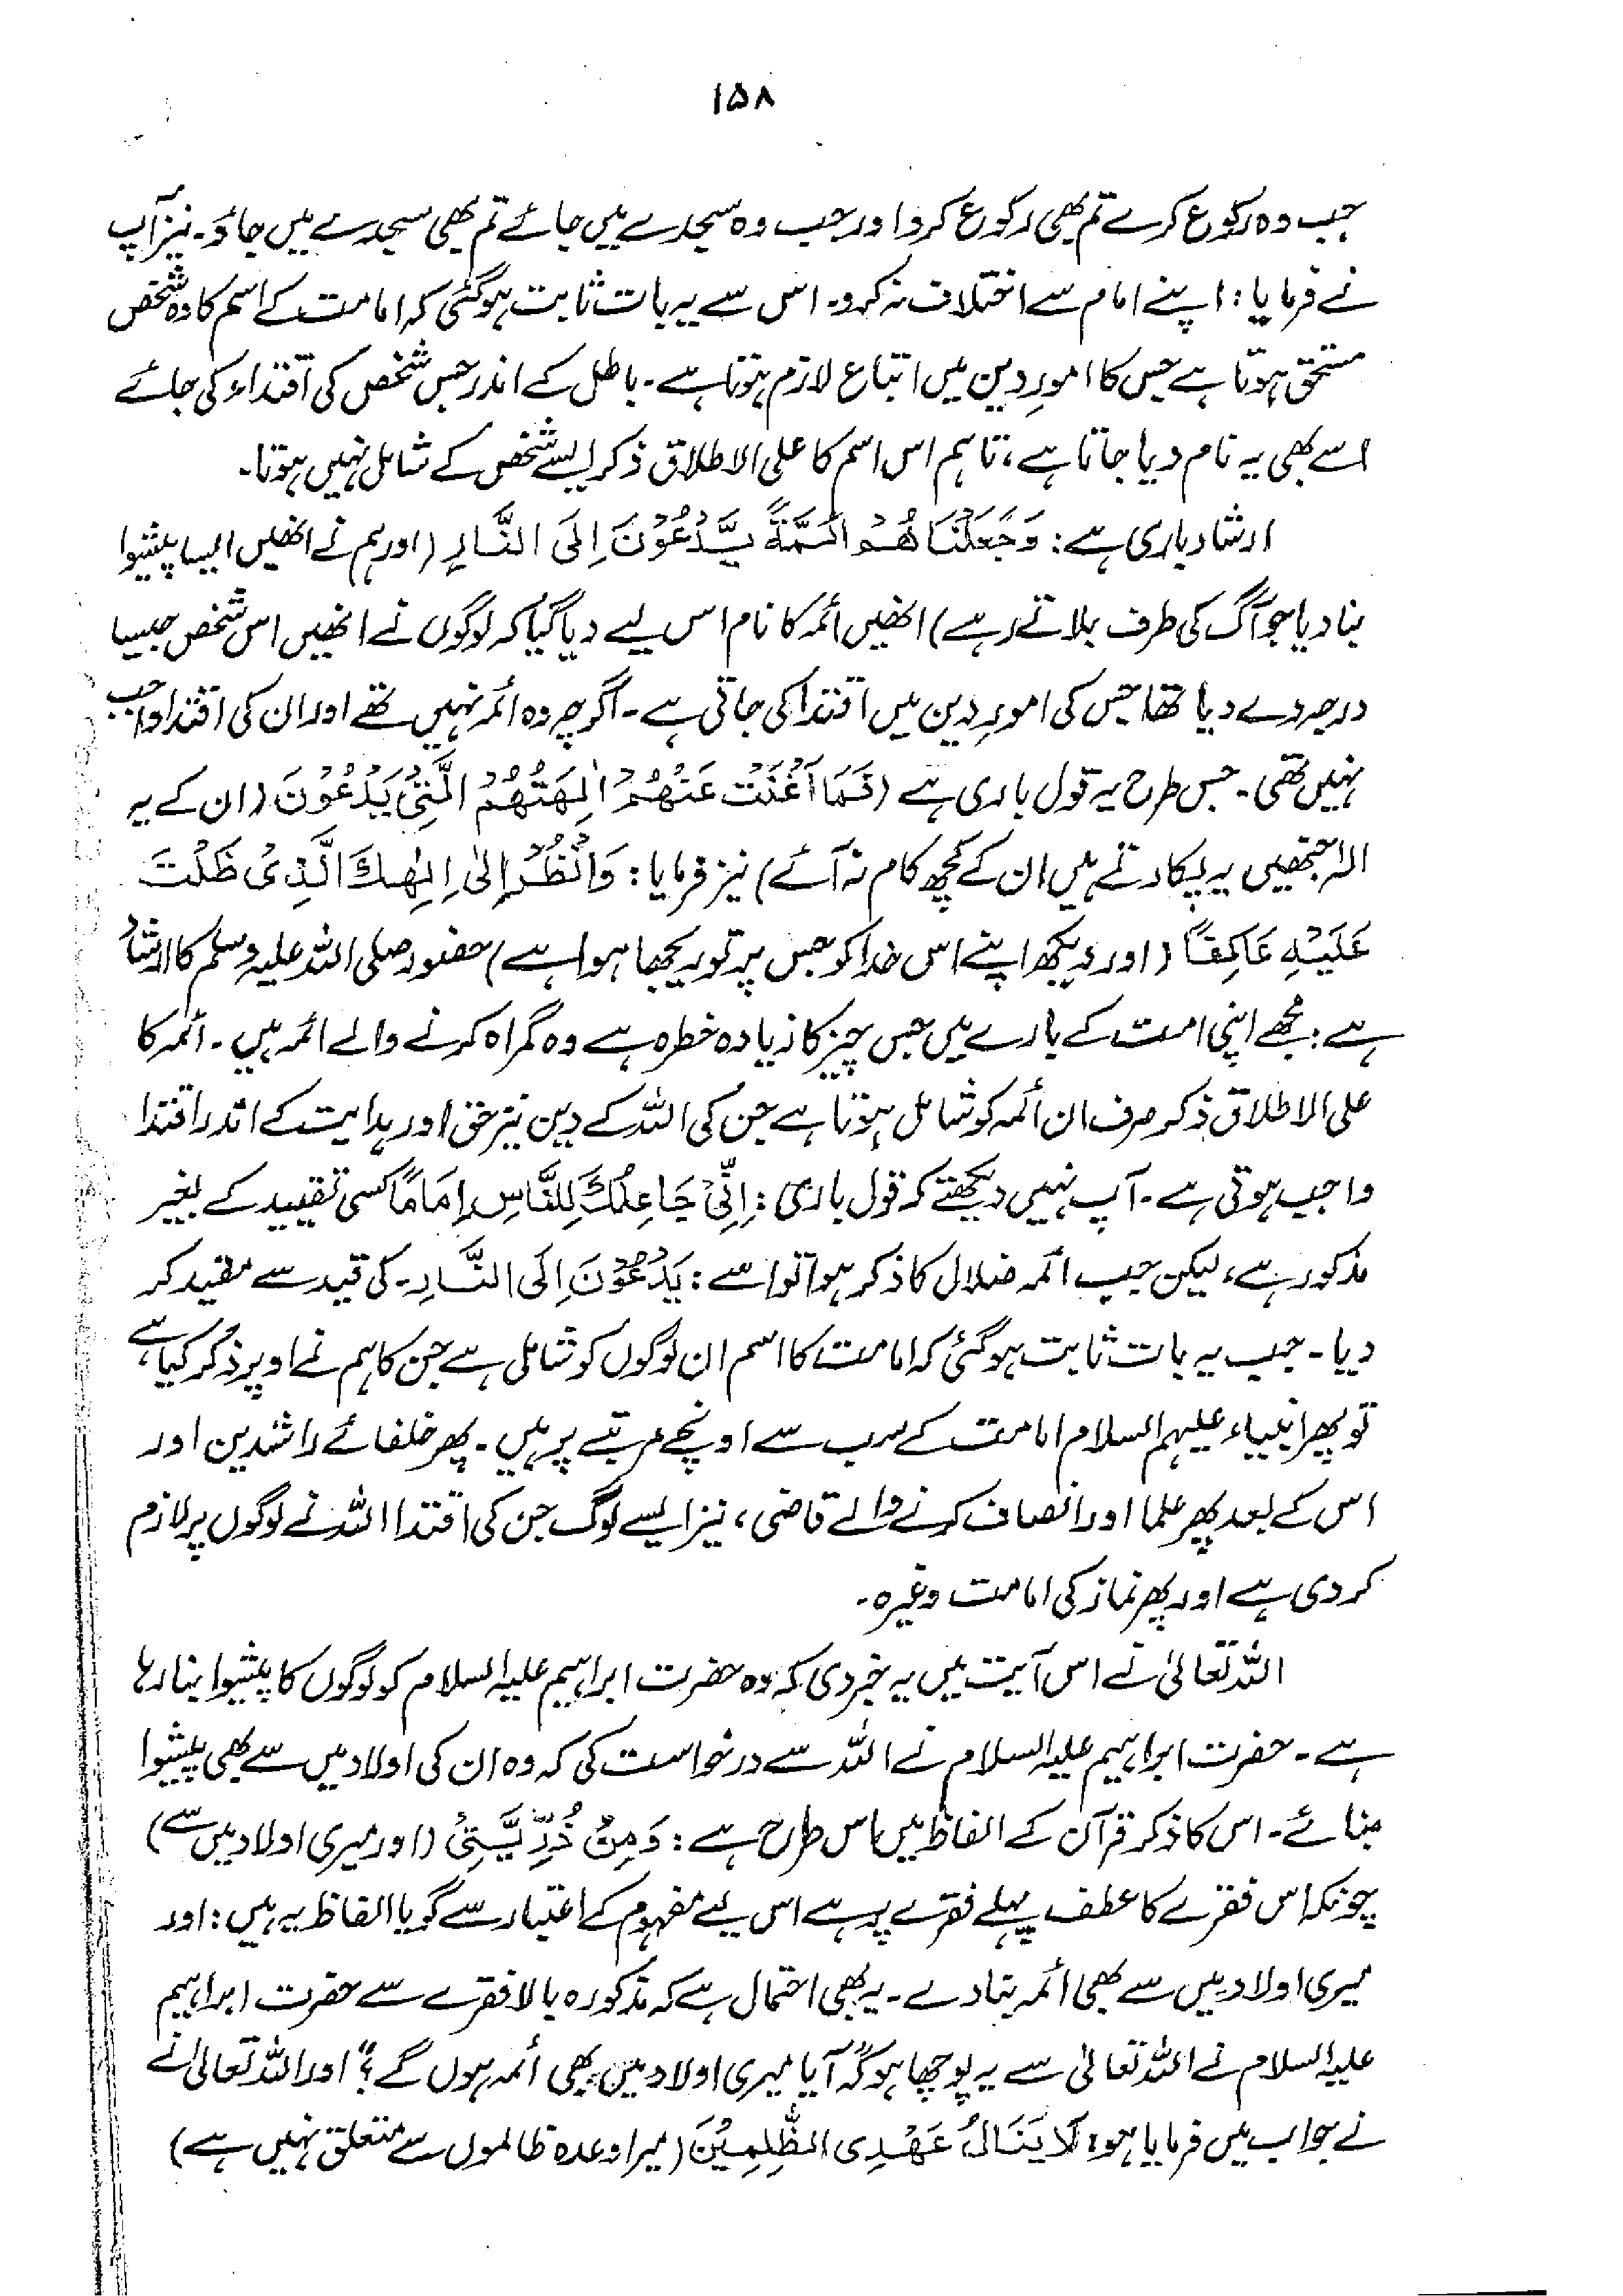 ۱۵۸
جب وہ رکوع کرے تم بھی رکوع کرو اور جب وہ سجدے میں جائے تم بھی سجدے میں جاؤ۔ نیز آپ
نے فرمایا: اپنے امام سے اختلاف نہ کرو۔ اس سے یہ بات ثابت ہوگئی کہ امامت کے اسم کا وہ شخص
مستحق ہوتا ہے جس کا امورِ دین میں اتباع لازم ہوتا ہے۔ باطل کے اندر جس شخص کی اقتداء کی جائے
اسے بھی یہ نام دیا جاتا ہے، تاہم اس اسم کا علی الاطلاق ذکر ایسے شخص کے شامل نہیں ہوتا۔
ارشاد باری ہے: وَجَعَلْنَاهُمْ اَئِمَّةً يَّدْعُوْنَ اِلَى النَّارِ (اور ہم نے انھیں ایسا پیشوا
بنا دیا جو آگ کی طرف بلاتے رہے) انھیں ائمہ کا نام اس لیے دیا گیا کہ لوگوں نے انھیں اس شخص جیسا
درجہ دے دیا تھا جس کی امورِ دین میں اقتدا کی جاتی ہے۔ اگرچہ وہ ائمہ نہیں تھے اور ان کی اقتدا واجب
نہیں تھی۔ جس طرح یہ قول باری ہے (فَمَا اَغْنَتْ عَنْهُمْ اٰلِهَتُهُمُ الَّتِيْ يَدْعُوْنَ (ان کے یہ
الٰہ جنھیں یہ پکارتے ہیں ان کے کچھ کام نہ آئے) نیز فرمایا: وَانْظُرْ اِلٰى اِلٰهِكَ الَّذِىْ ظَلْتَ
عَلَيْهِ عَاكِفًا (اور دیکھ اپنے اس خدا کو جس پر تو ریجھا ہوا ہے) حضور صلی اللہ علیہ وسلم کا ارشاد
ہے: مجھے اپنی امت کے بارے میں جس چیز کا زیادہ خطرہ ہے وہ گمراہ کرنے والے ائمہ ہیں۔ ائمہ کا
علی الاطلاق ذکر صرف ان ائمہ کو شامل ہوتا ہے جن کی اللہ کے دین نیز حق اور ہدایت کے اندر اقتدا
واجب ہوتی ہے۔ آپ نہیں دیکھتے کہ قول باری: اِنِّىْ جَاعِلُكَ لِلنَّاسِ اِمَامًا کسی تقیید کے بغیر
مذکور ہے، لیکن جب ائمہ ضلال کا ذکر ہوا تو اسے: يَدْعُوْنَ اِلَى النَّارِ۔ کی قید سے مقید کر
دیا۔ جب یہ بات ثابت ہوگئی کہ امامت کا اسم ان لوگوں کو شامل ہے جن کا ہم نے اوپر ذکر کیا ہے،
تو پھر انبیاء علیہم السلام امامت کے سب سے اونچے مرتبے پر ہیں۔ پھر خلفائے راشدین اور
اس کے بعد پھر علما اور انصاف کرنے والے قاضی، نیز ایسے لوگ جن کی اقتدا اللہ نے لوگوں پر لازم
کر دی ہے اور پھر نماز کی امامت وغیرہ۔
اللہ تعالیٰ نے اس آیت میں یہ خبر دی کہ وہ حضرت ابراہیم علیہ السلام کو لوگوں کا پیشوا بنا رہا
ہے۔ حضرت ابراہیم علیہ السلام نے اللہ سے درخواست کی کہ وہ ان کی اولاد میں سے بھی پیشوا
بنائے۔ اس کا ذکر قرآن کے الفاظ میں اس طرح ہے: وَمِنْ ذُرِّيَّتِىْ (اور میری اولاد میں سے)
چونکہ اس فقرے کا عطف پہلے فقرے پر ہے اس لیے مفہوم کے اعتبار سے گویا الفاظ یہ ہیں: اور
میری اولاد میں سے بھی ائمہ بنا دے۔ یہ بھی احتمال ہے کہ مذکورہ بالا فقرے سے حضرت ابراہیم
علیہ السلام نے اللہ تعالیٰ سے یہ پوچھا ہو کہ "آیا میری اولاد میں بھی ائمہ ہوں گے؟" اور اللہ تعالیٰ نے
نے جواب میں فرمایا ہو: لَا يَنَالُ عَهْدِى الظّٰلِمِيْنَ (میرا وعدہ ظالموں سے متعلق نہیں ہے)